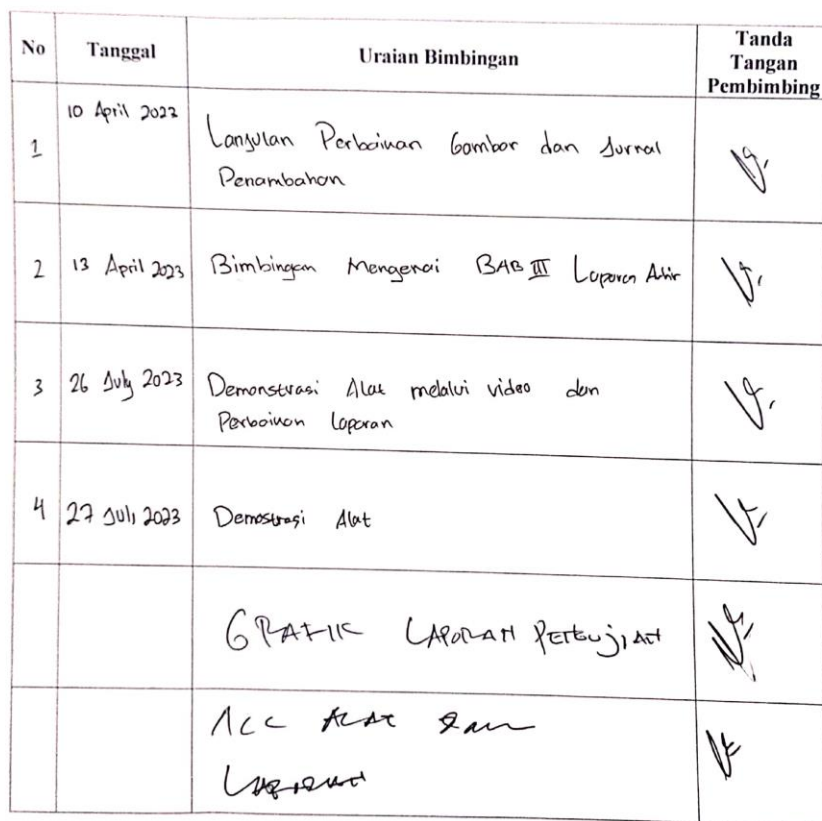 No Tanggal Uraian Bimbingan Tanda
Tangan
Pembimbing
10 April 2023
1 Lanjutan Perbaikan Gambar dan Jurnal
Penambahan
2 13 April 2023 Bimbingan Mengenai BAB III Laporan Akhir
3 26 July 2023 Demonstrasi Alat melalui video dan
Perbaikan Laporan
4 27 Juli 2023 Demostrasi Alat
GRAFIK LAPORAN PENGUJIAN
ACC ALAT dan
LAPORAN